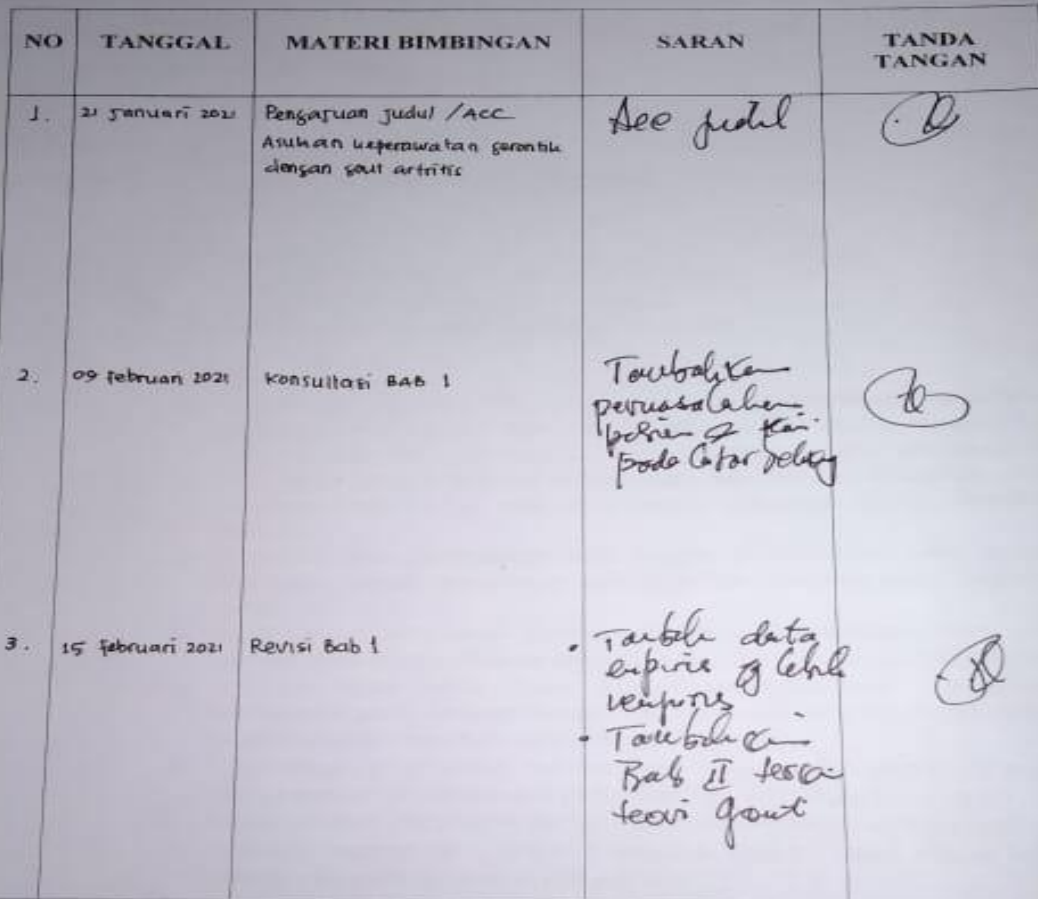 NO TANGGAL MATERI BIMBINGAN SARAN TANDA TANGAN
1. 21 Januari 2021 Pengajuan Judul / ACC Acc judul
Asuhan keperawatan gerontik
dengan gout artritis
2. 09 Februari 2021 Konsultasi BAB 1 Tambahkan
permasalahan
pasien
pada latar belakang
3. 15 Februari 2021 Revisi Bab 1 • Tambah data
empiris yg lebih
• Tambahkan
Bab II
teori gout